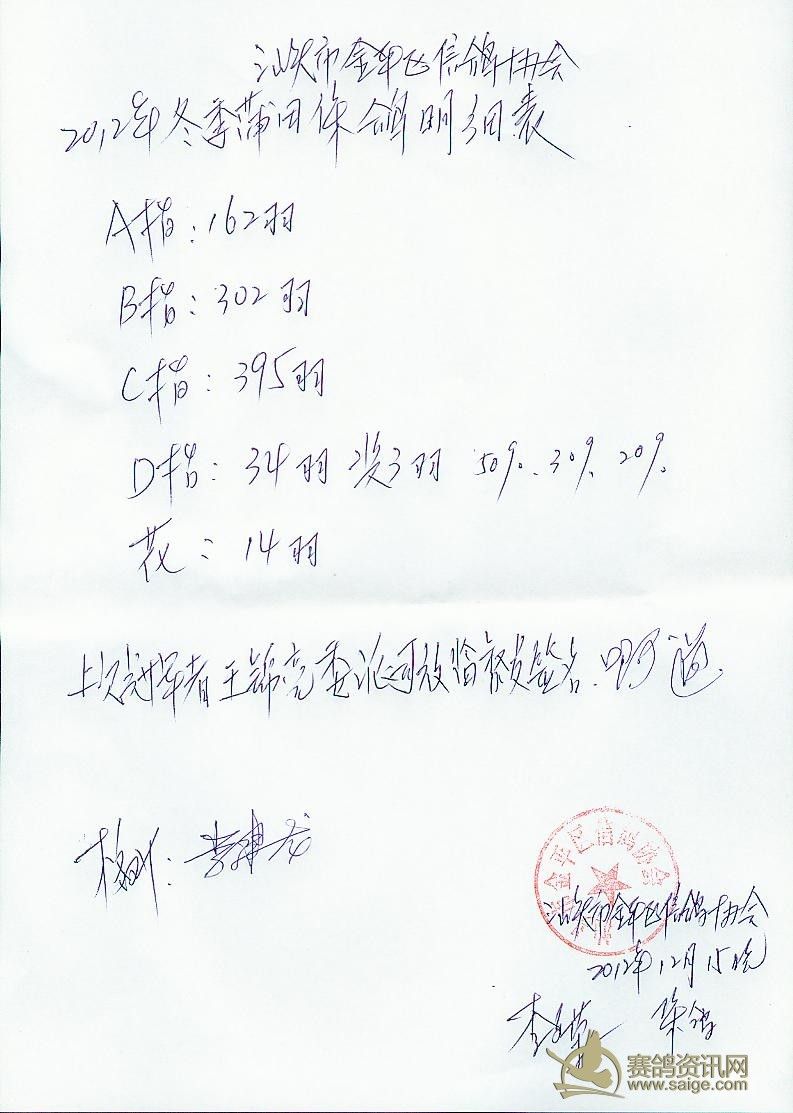 汕头市金平区信鸽协会
2012年冬季莆田集鸽明细表
A指:162羽
B指:302羽
C指:395羽
D指:34羽 奖3羽 50%.30%.20%.
花:14羽
上次冠军者王锦亮委派司放监督发签名.
李建龙
金平区信鸽协会
汕头市金平区信鸽协会
2012年12月15晚
集鸽
赛鸽资讯网
www.saige.com